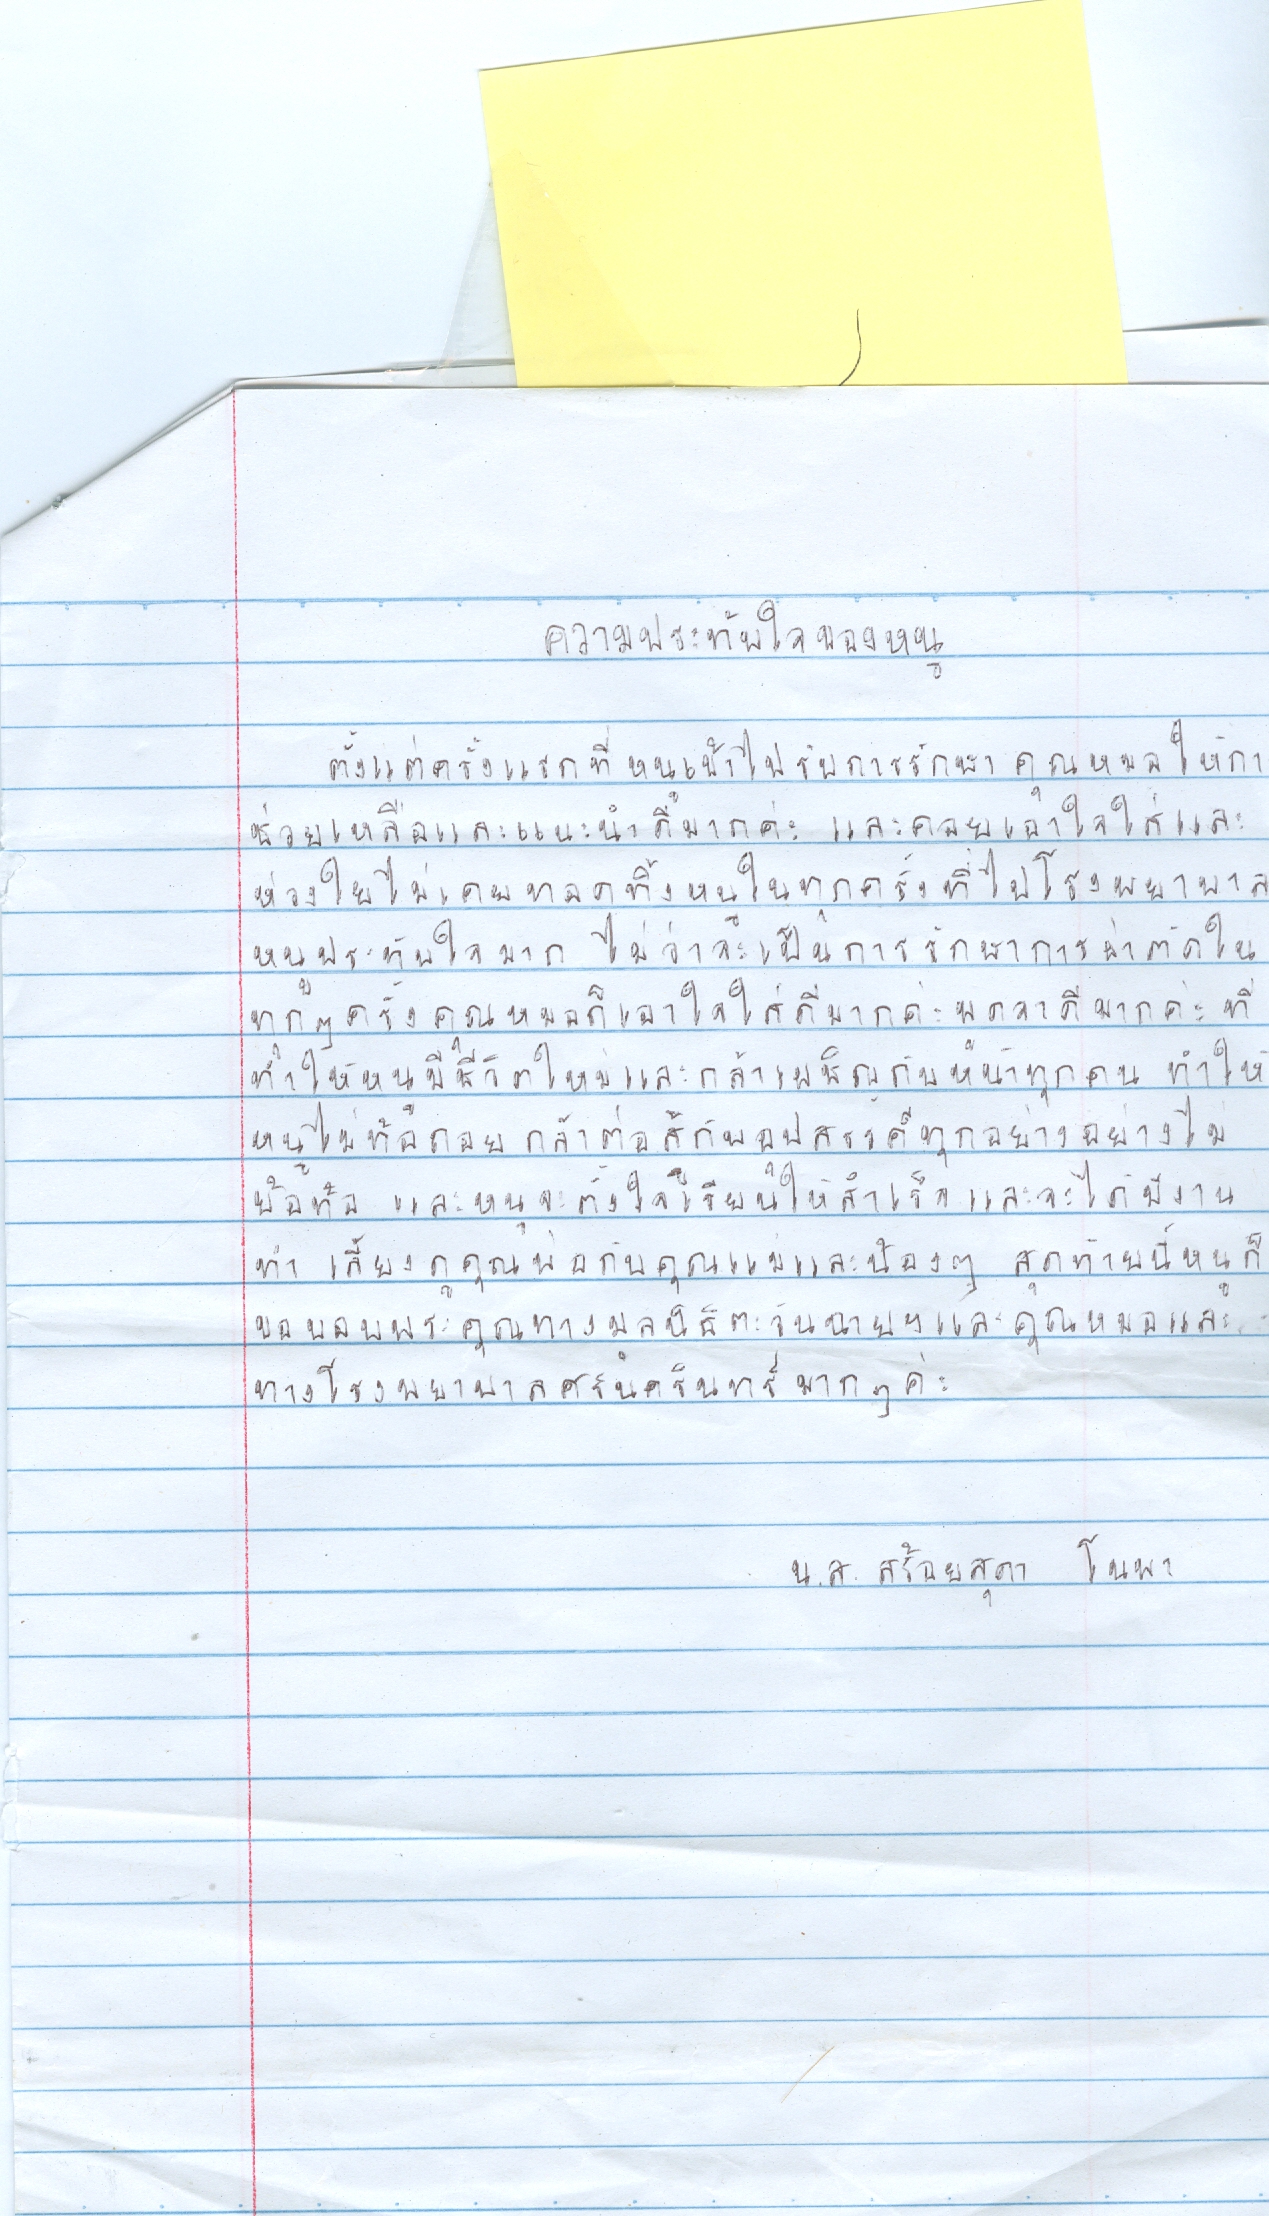 ความประทับใจของหนู
ตั้งแต่ครั้งแรกที่หนูเข้าไปรับการรักษา คุณหมอให้กา
ช่วยเหลือและแนะนำดีมากค่ะ และคอยเอาใจใส่และ
ห่วงใยไม่เคยทอดทิ้งหนูในทุกครั้งที่ไปโรงพยาบาล
หนูประทับใจมาก ไม่ว่าจะเป็นการรักษาการผ่าตัดใน
ทุกๆครั้งคุณหมอก็เอาใจใส่ดีมากค่ะพูดจาดีมากค่ะ ที่
ทำให้หนูมีชีวิตใหม่และกล้าเผชิญกับหน้าทุกคน ทำให้
หนูไม่ท้อถอย กล้าต่อสู้กับอุปสรรค์ทุกอย่างอย่างไม่
ย้อท้อ และหนูจะตั้งใจเรียนให้สำเร็จและจะได้มีงาน
ทำ เลี้ยงดูคุณพ่อกับคุณแม่และน้องๆ สุดท้ายนี้หนูก็
ขอขอบพระคุณทางมูลนิธิตะวันฉายฯและคุณหมอและ
ทางโรงพยาบาลศรีนครินทร์มากๆค่ะ
น.ส. สร้อยสุดา โนพา